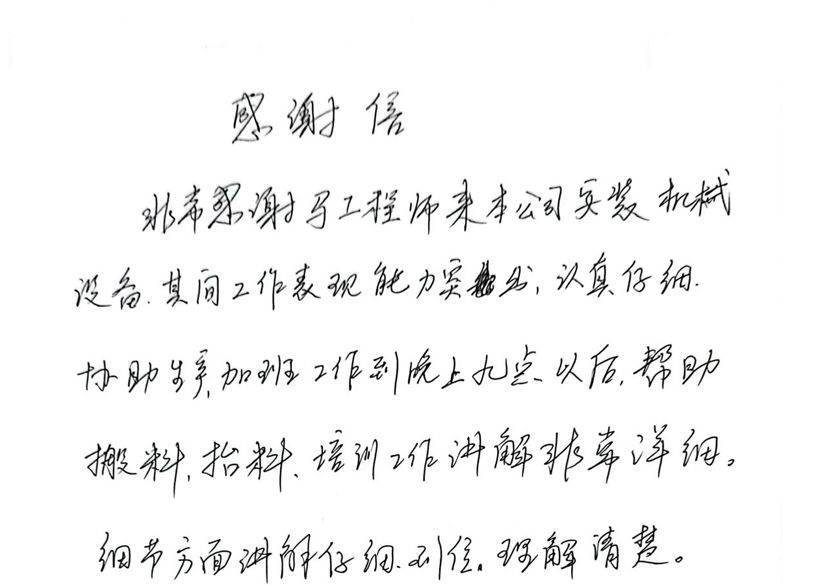 感谢信
非常感谢马工程师来本公司安装机械
设备.其间工作表现能力突出,认真仔细.
协助生产,加班工作到晚上九点以后,帮助
搬料,抬料、培训工作讲解非常详细。
细节方面讲解仔细.到位,理解清楚。